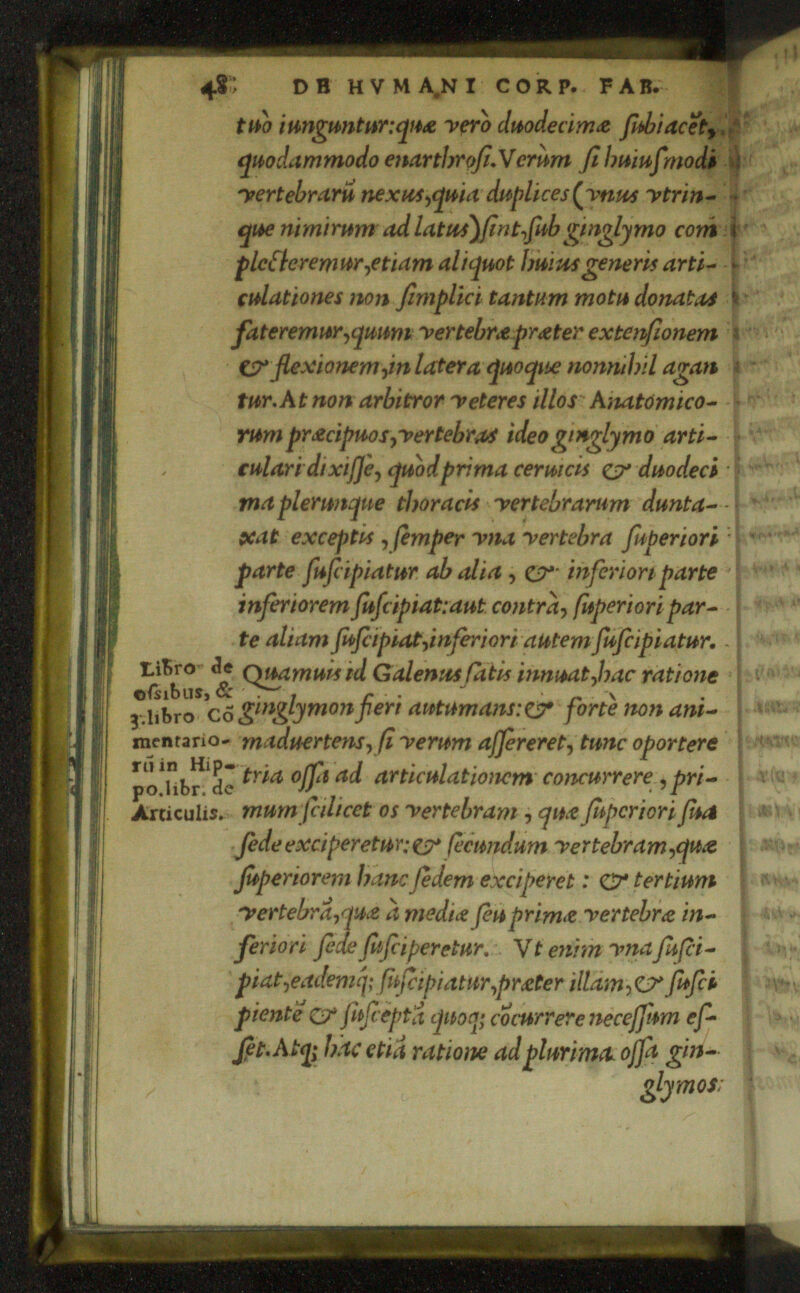 48 DE HVMANI CORP. FAB.
tuo iunguntur:quæ vero duodecimæ ſubiacet,
quodammodo enarthroſi. Verùm ſi huiuſmodi
vertebrarũ nexus,quia duplices (vnus vtrin-
que nimirum ad latus) ſint,ſub ginglymo com
plecteremur,etiam aliquot huius generis arti-
culationes non ſimplici tantum motu donatas
fateremur,quum vertebræ præter extenſionem
& flexionem,in latera quoque nonnihil agan
tur. At non arbitror veteres illos Anatomico-
rum præcipuos,vertebras ideo ginglymo arti-
culari dixiſſe, quòd prima ceruicis & duodeci
ma plerunque thoracis vertebrarum dunta-
xat exceptis , ſemper vna vertebra ſuperiori
parte ſuſcipiatur ab alia , & inferiori parte
inferiorem ſuſcipiat:aut contrà, ſuperiori par-
te aliam ſuſcipiat,inferiori autem ſuſcipiatur.
Quamuis id Galenus ſatis innuat,hac ratione
ginglymon fieri autumans:& fortè non ani-
maduertens, ſi verum aſſereret, tunc oportere
tria oſſa ad articulationem concurrere , pri-
mum ſcilicet os vertebram , quæ ſuperiori ſua
ſede exciperetur:& ſecundum vertebram,quæ
ſuperiorem hanc ſedem exciperet : & tertium
vertebrã,quæ à mediæ ſeu primæ vertebræ in-
feriori ſede ſuſciperetur. Vt enim vna ſuſci-
piat,eademq; ſuſcipiatur,præter illam,& ſuſci
pientẽ & ſuſceptã quoq; cõcurrere neceſſum eſ-
ſet. Atq; hãc etiã ratione ad plurima oſſa gin-
glymos
Libro de
oſsibus, &
3.libro Cõ
mentario-
rũ in Hip-
po.libr. de
Articulis.